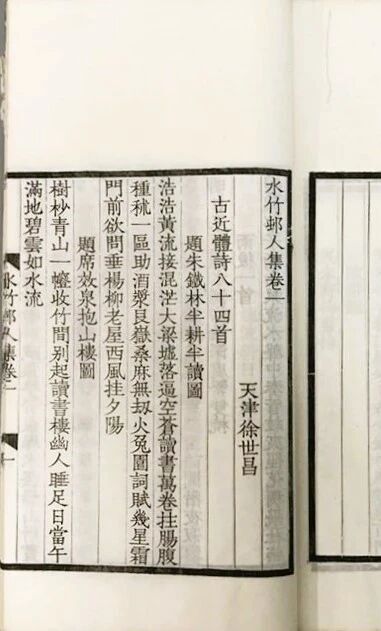 水竹邨人集卷一
天津徐世昌
古近體詩八十四首
題朱鐵林半耕半讀圖
浩浩黃流接混茫大梁墟落逼空蒼讀書萬卷拄腸腹
種秫一區助酒漿艮嶽桑麻無刼火兔園詞賦幾星霜
門前欲問垂楊柳老屋西風挂夕陽
題席效泉抱山樓圖
樹杪青山一幰收竹間别起讀書樓幽人睡足日當午
滿地碧雲如水流
水竹邨人集卷一
一